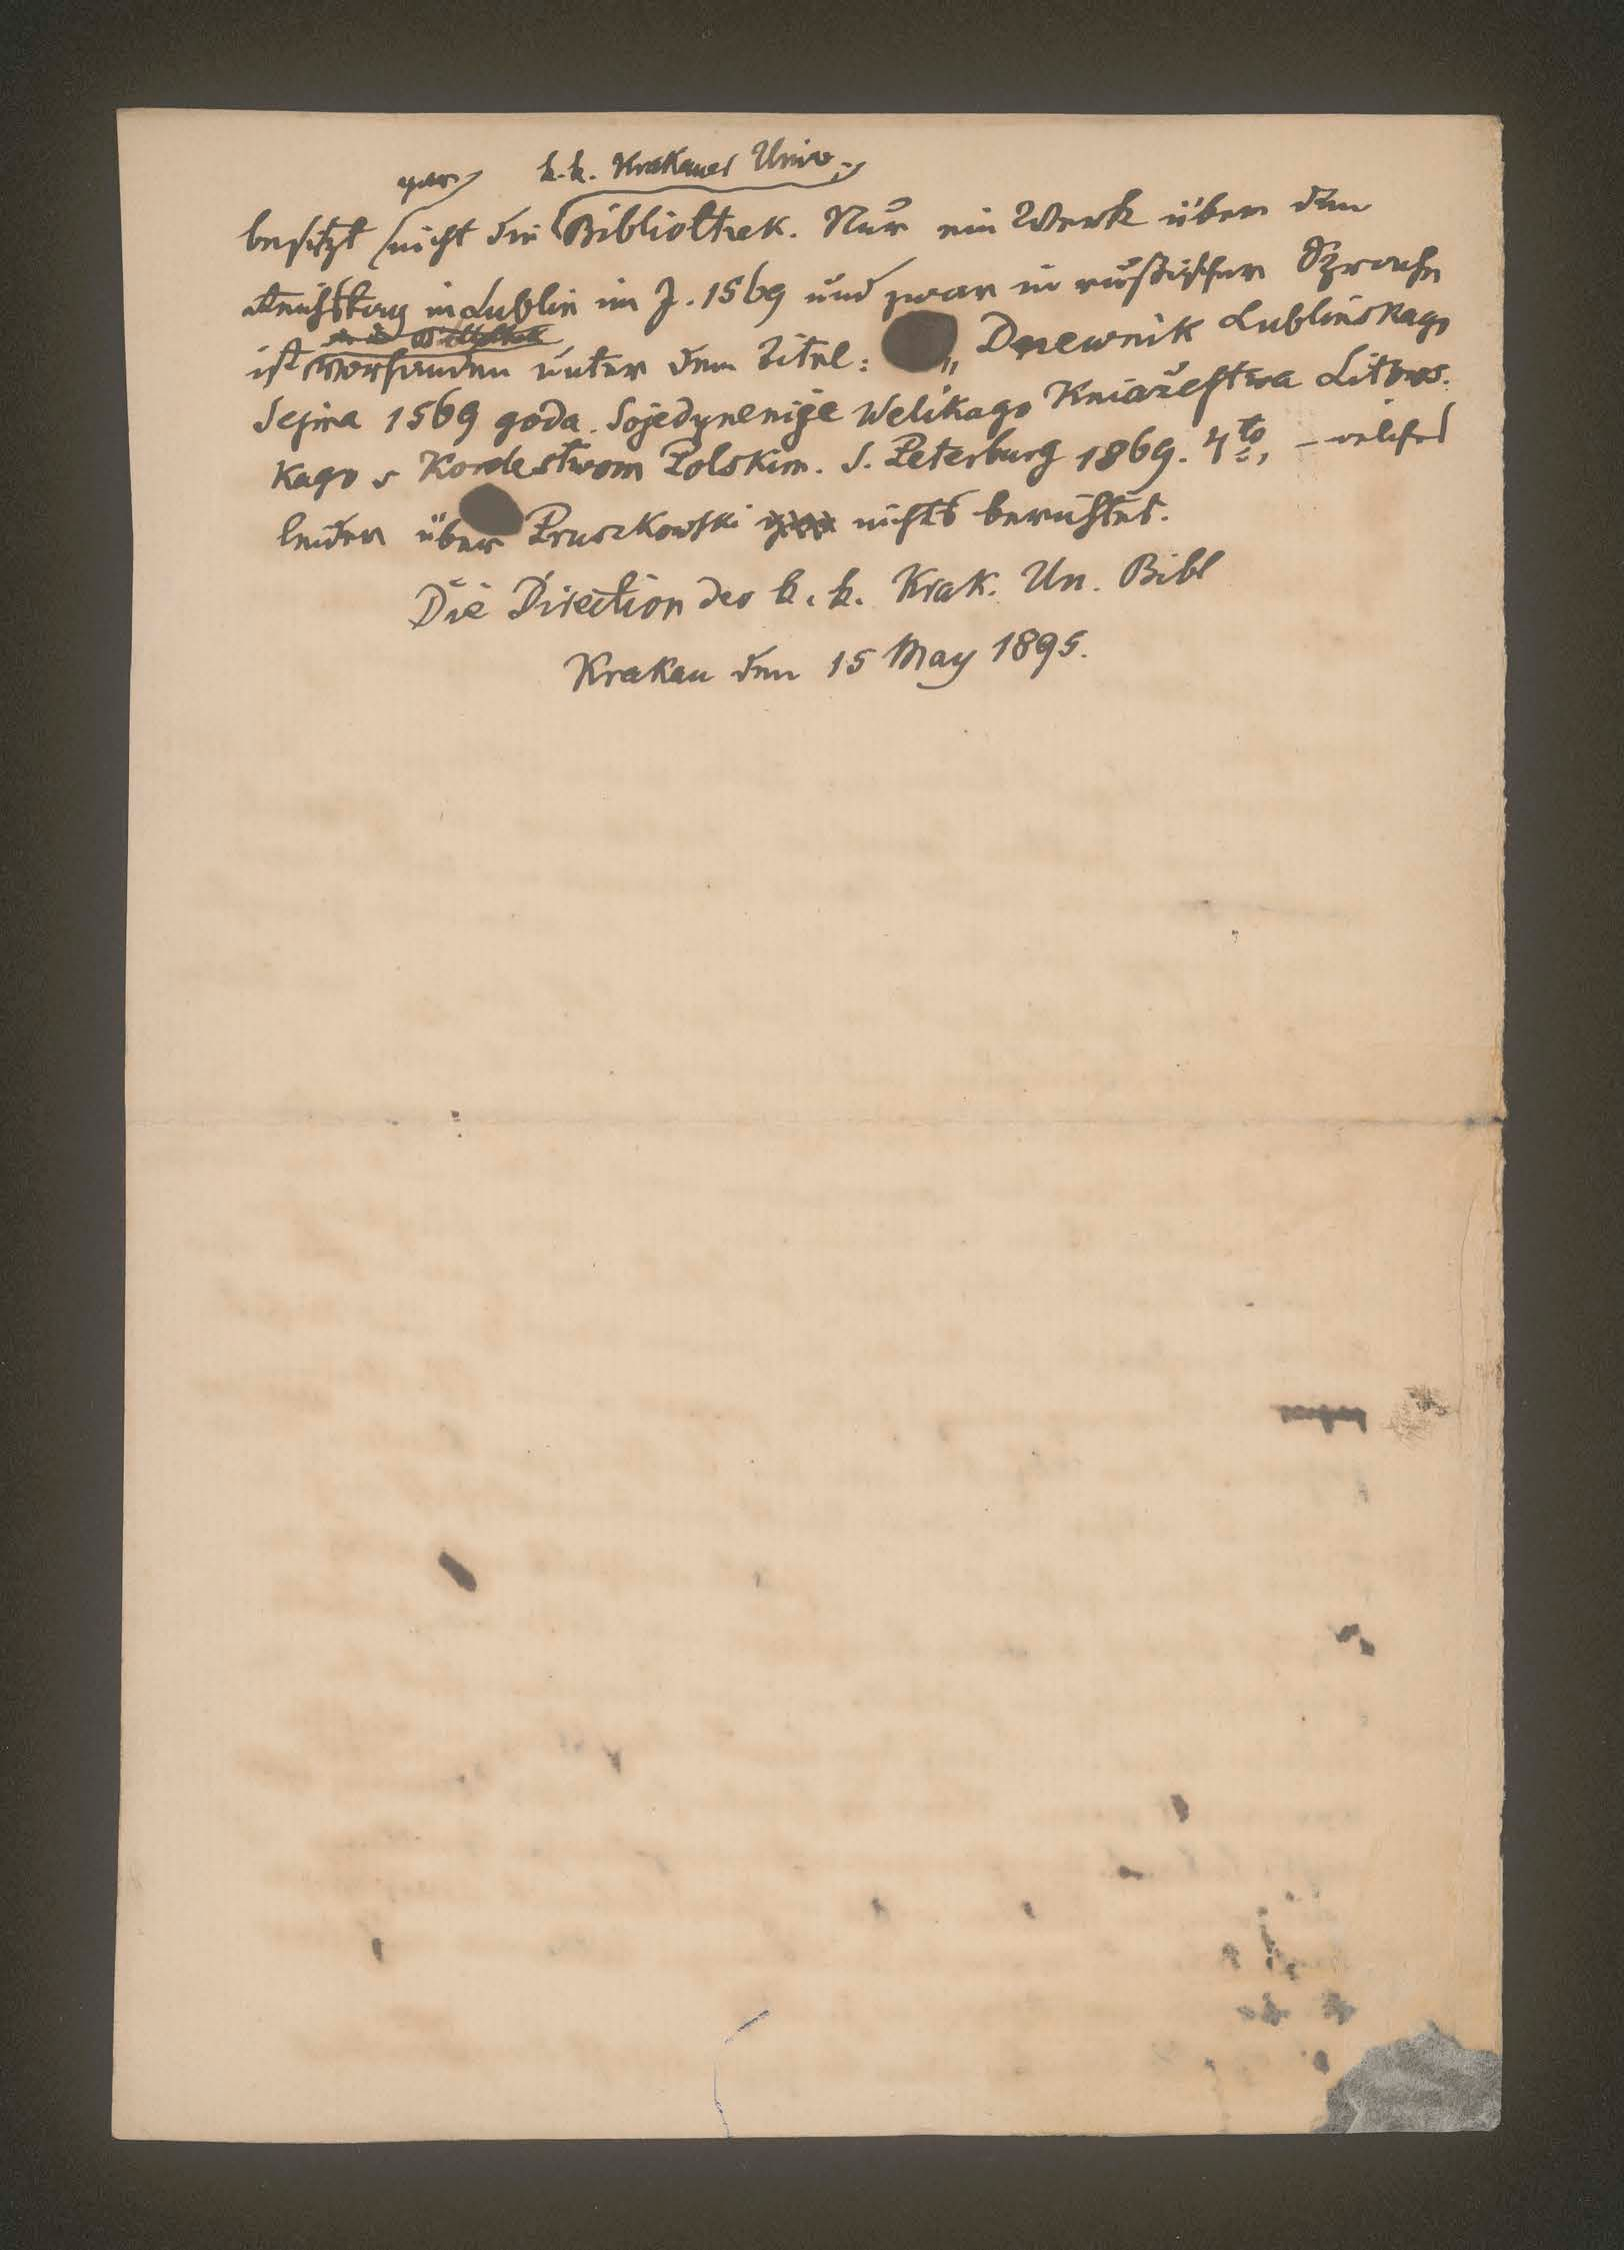 gar k. k. Krakauer Univ.
besitzt nicht die Bibliothek. Nur ein Werk über den
Reichstag in Lublin im J. 1569 und zwar in rußischer Sprache
ist vorhanden unter dem Titel: „Dnewnik Lublinskago
Sejma 1569 goda. Sojedynenije Welikago Kniažestwa Litows-
kago s Korolestwom Polskim. S. Peterburg 1869. 4to, – welches
leider über Pruszkowski nichts berichtet.
Die Direction der k. k. Krak. Un. Bibl
Krakau den 15 May 1895.